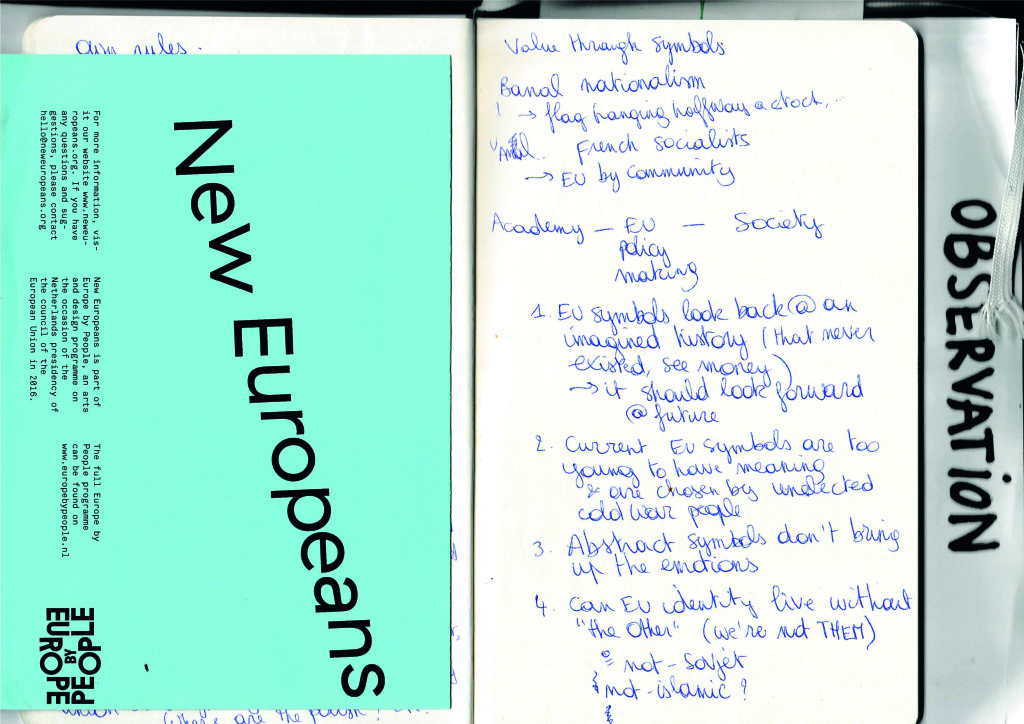 own rules.
New Europeans
For more information, vis-
it our website www.neweu-
ropeans.org. If you have
any questions and sug-
gestions, please contact
hello@neweuropeans.org
New Europeans is part of
Europe by People, an arts
and design programme on
the occasion of the
Netherlands presidency of
the council of the
European Union in 2016.
The full Europe by
People programme
can be found on
www.europebypeople.nl
EUROPE
BY
PEOPLE
Value through symbols
Banal nationalism
→ flag hanging halfway a clock,
French Socialists
→ EU by community
Academy — EU — Society
policy
making
1. EU symbols look back @ an
imagined history (that never
existed, see money)
→ it should look forward
@ future
2. Current EU symbols are too
young to have meaning
& are chosen by unelected
cold war people
3. Abstract symbols don't bring
up the emotions
4. Can EU identity live without
"the Other" (we're not THEM)
not-Sovjet
not-islamic?
OBSERVATION